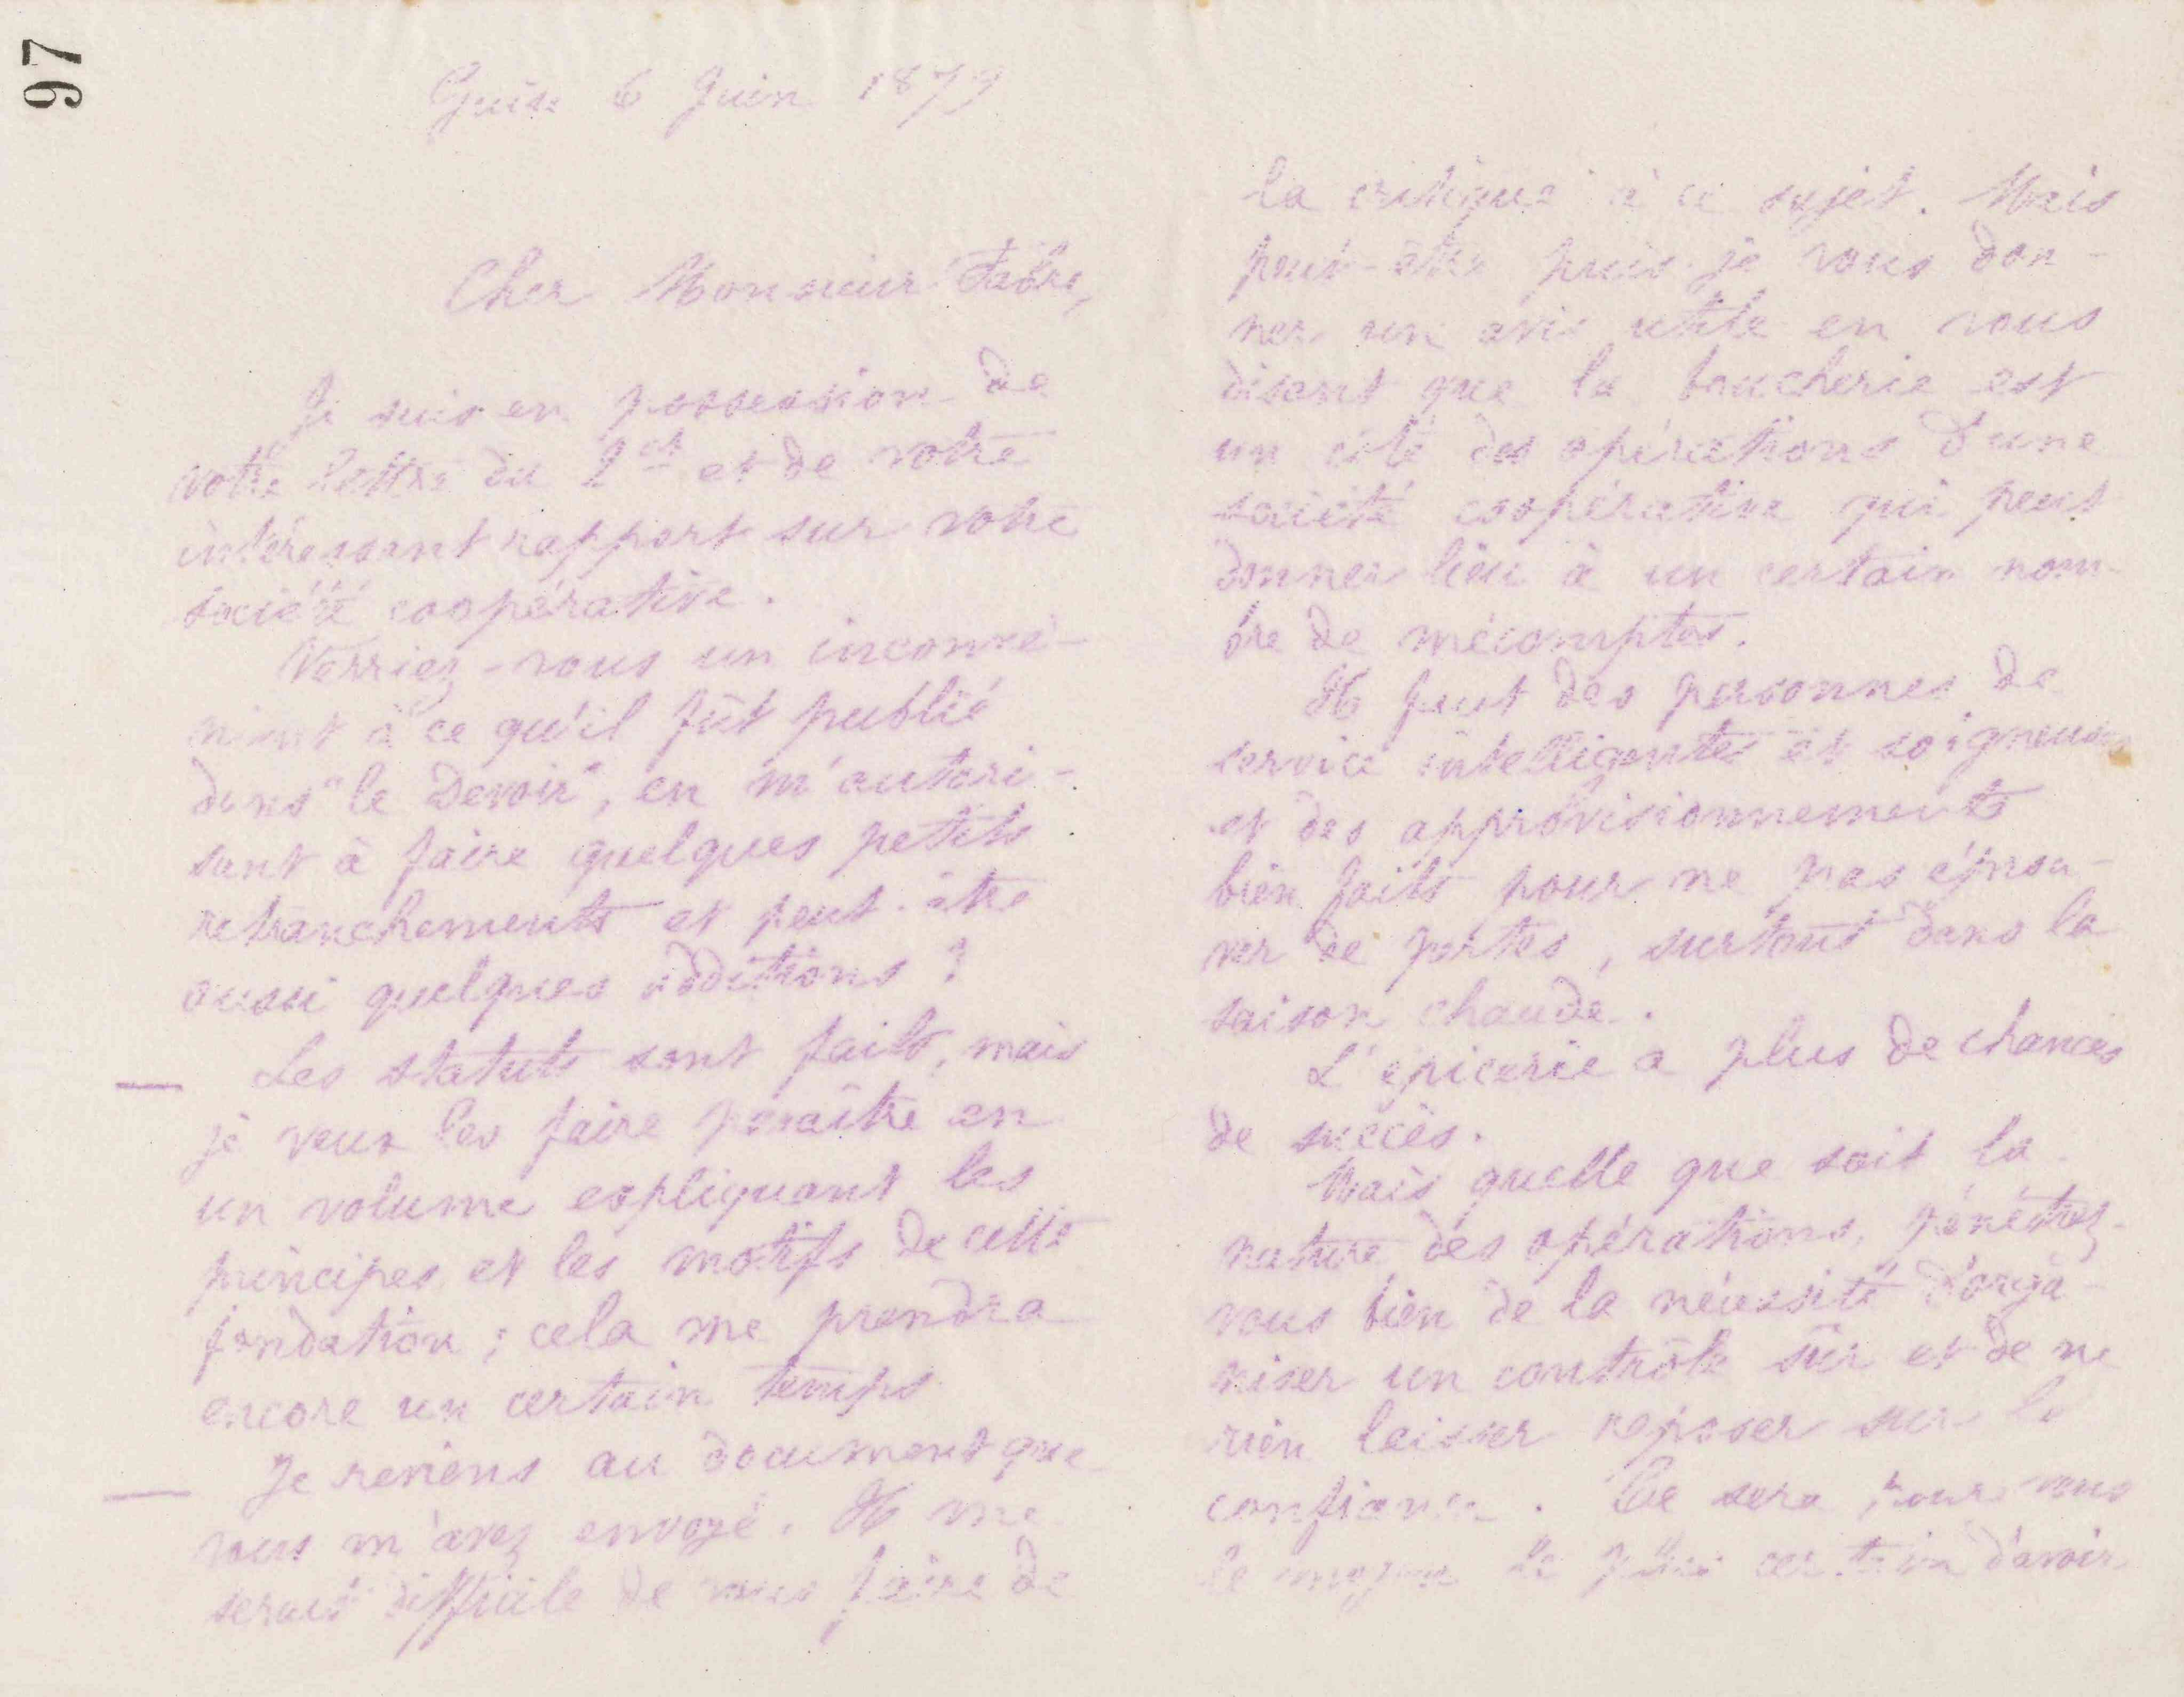 97
Guise 6 Juin 1879
Cher Monsieur Fabre,
Je suis en possession de
votre lettre du 2 ct et de votre
intéressant rapport sur votre
société coopérative.
Verriez-vous un inconvé-
nient à ce qu'il fût publié
dans "le Devoir", en m'autori-
sant à faire quelques petits
retranchements et peut-être
aussi quelques additions ?
— Les statuts sont faits, mais
je veux les faire paraître en
un volume expliquant les
principes et les motifs de cette
fondation ; cela me prendra
encore un certain temps
— Je reviens au document que
vous m'avez envoyé. Il me
serait difficile de vous faire de
la critique à ce sujet. Mais
peut-être puis-je vous don-
ner un avis utile en vous
disant que la boucherie est
un côté des opérations d'une
société coopérative qui peut
donner lieu à un certain nom-
bre de mécomptes.
Il faut des personnes de
service intelligentes et soigneuses
et des approvisionnements
bien faits pour ne pas éprou-
ver de pertes, surtout dans la
saison chaude.
L'épicerie a plus de chances
de succès.
Mais quelle que soit la
nature des opérations, pénétrez-
vous bien de la nécessité d'orga-
niser un contrôle sûr et de ne
rien laisser reposer sur la
confiance. Ce sera pour vous
le moyen le plus certain d'avoir